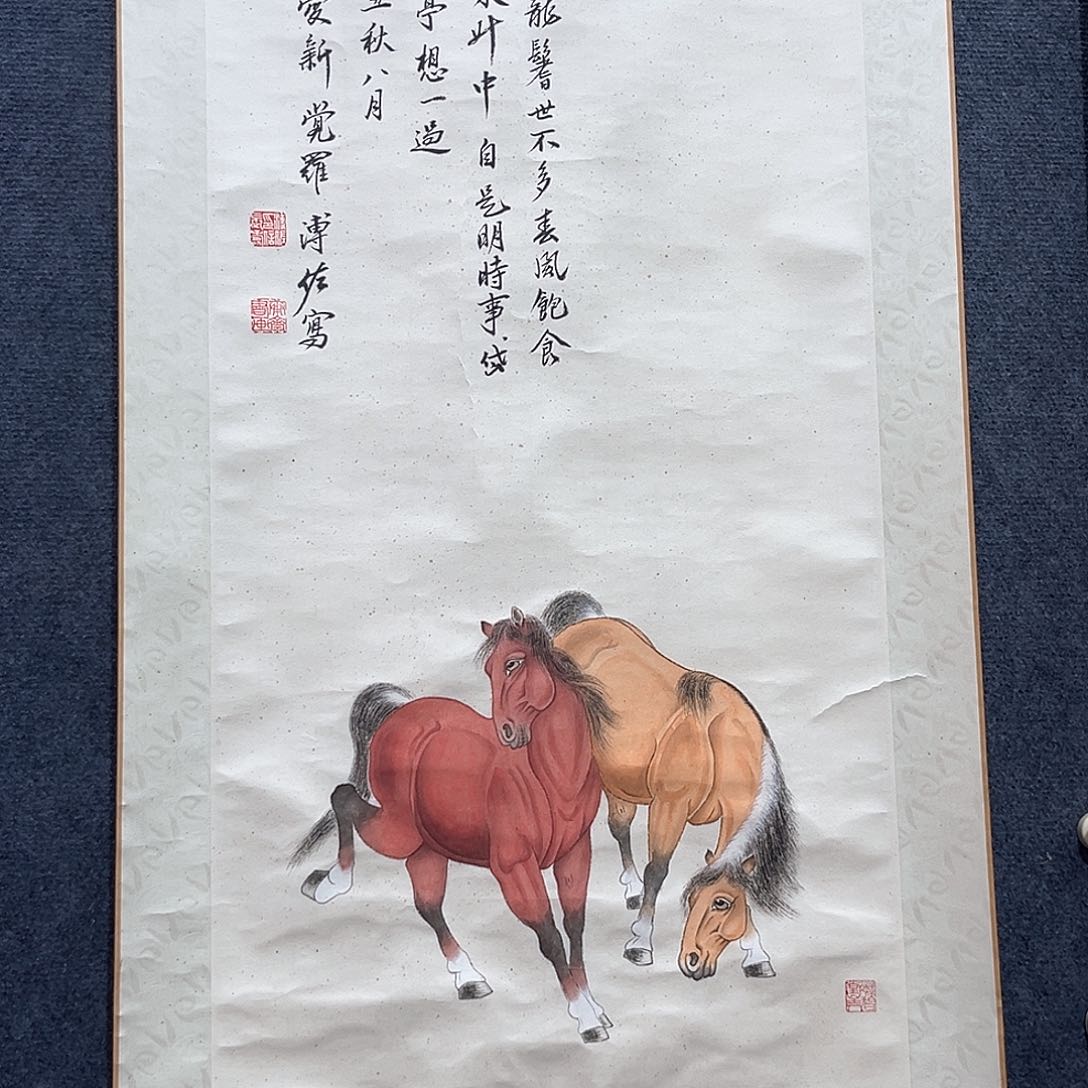 龍鬐世不多春風飽食
此中自是明時事
亭想一過
秋八月
愛新覺羅溥佐寫